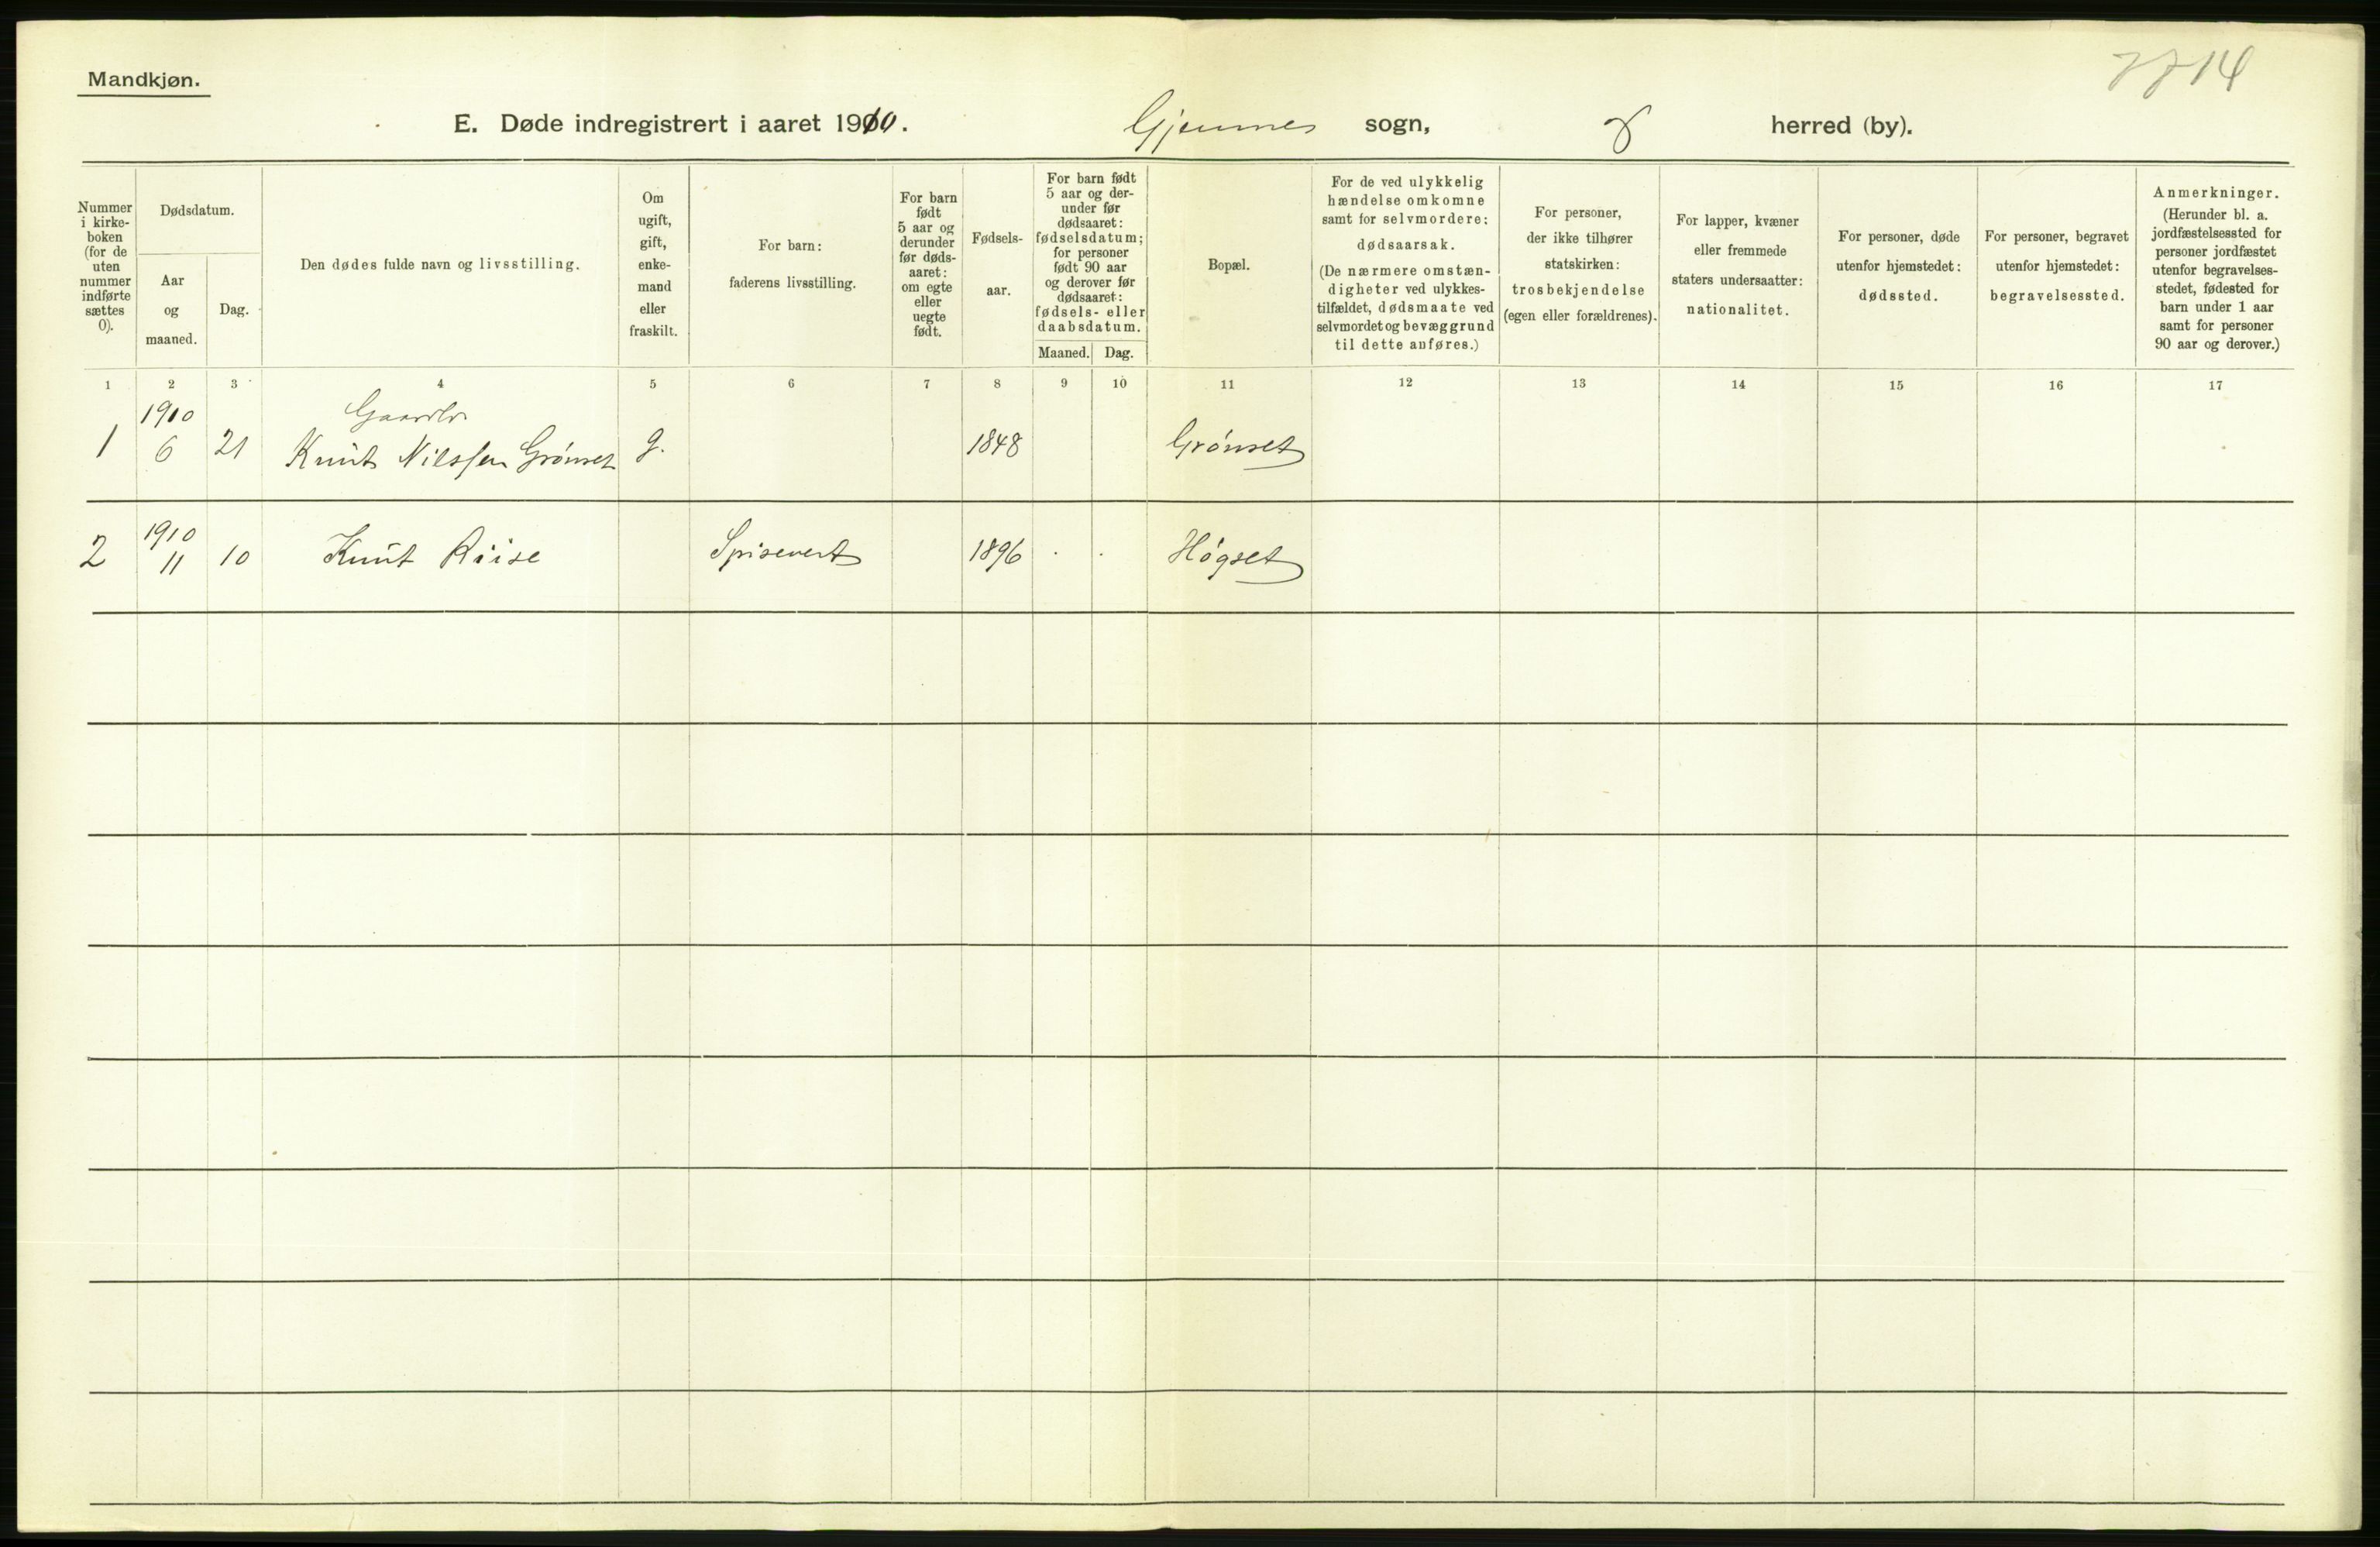 Mandkjøn.
7714
E. Døde indregistrert i aaret 1910. Gjemnes sogn, herred (by).
Nummer i kirke- boken (for de uten nummer indførte sættes 0).
Dødsdatum.
Aar og maaned.
Dag.
Den dødes fulde navn og livsstilling.
Om ugift, gift, enke- mand eller fraskilt.
For barn: faderens livsstilling.
For barn født 5 aar og derunder før døds- aaret: om egte eller uegte født.
Fødsels- aar.
For barn født 5 aar og der- under før dødsaaret: fødselsdatum; for personer født 90 aar og derover før dødsaaret: fødsels- eller daabsdatum.
Maaned. Dag.
Bopæl.
For de ved ulykkelig hændelse omkomne samt for selvmordere: dødsaarsak. (De nærmere omstæn- digheter ved ulykkes- tilfældet, dødsmaate ved selvmordet og bevæggrund til dette anføres.)
For personer, der ikke tilhører statskirken: trosbekjendelse (egen eller forældrenes).
For lapper, kvæner eller fremmede staters undersaatter: nationalitet.
For personer, døde utenfor hjemstedet: dødssted.
For personer, begravet utenfor hjemstedet: begravelsessted.
Anmerkninger. (Herunder bl. a. jordfæstelsessted for personer jordfæstet utenfor begravelses- stedet, fødested for barn under 1 aar samt for personer 90 aar og derover.)
1 2 3 4 5 6 7 8 9 10 11 12 13 14 15 16 17
1910 Gaardbr
1 6 21 Knut Nilssen Grönset g. 1848 Grönset
1910
2 11 10 Knut Riise Spisevert 1896 Högset